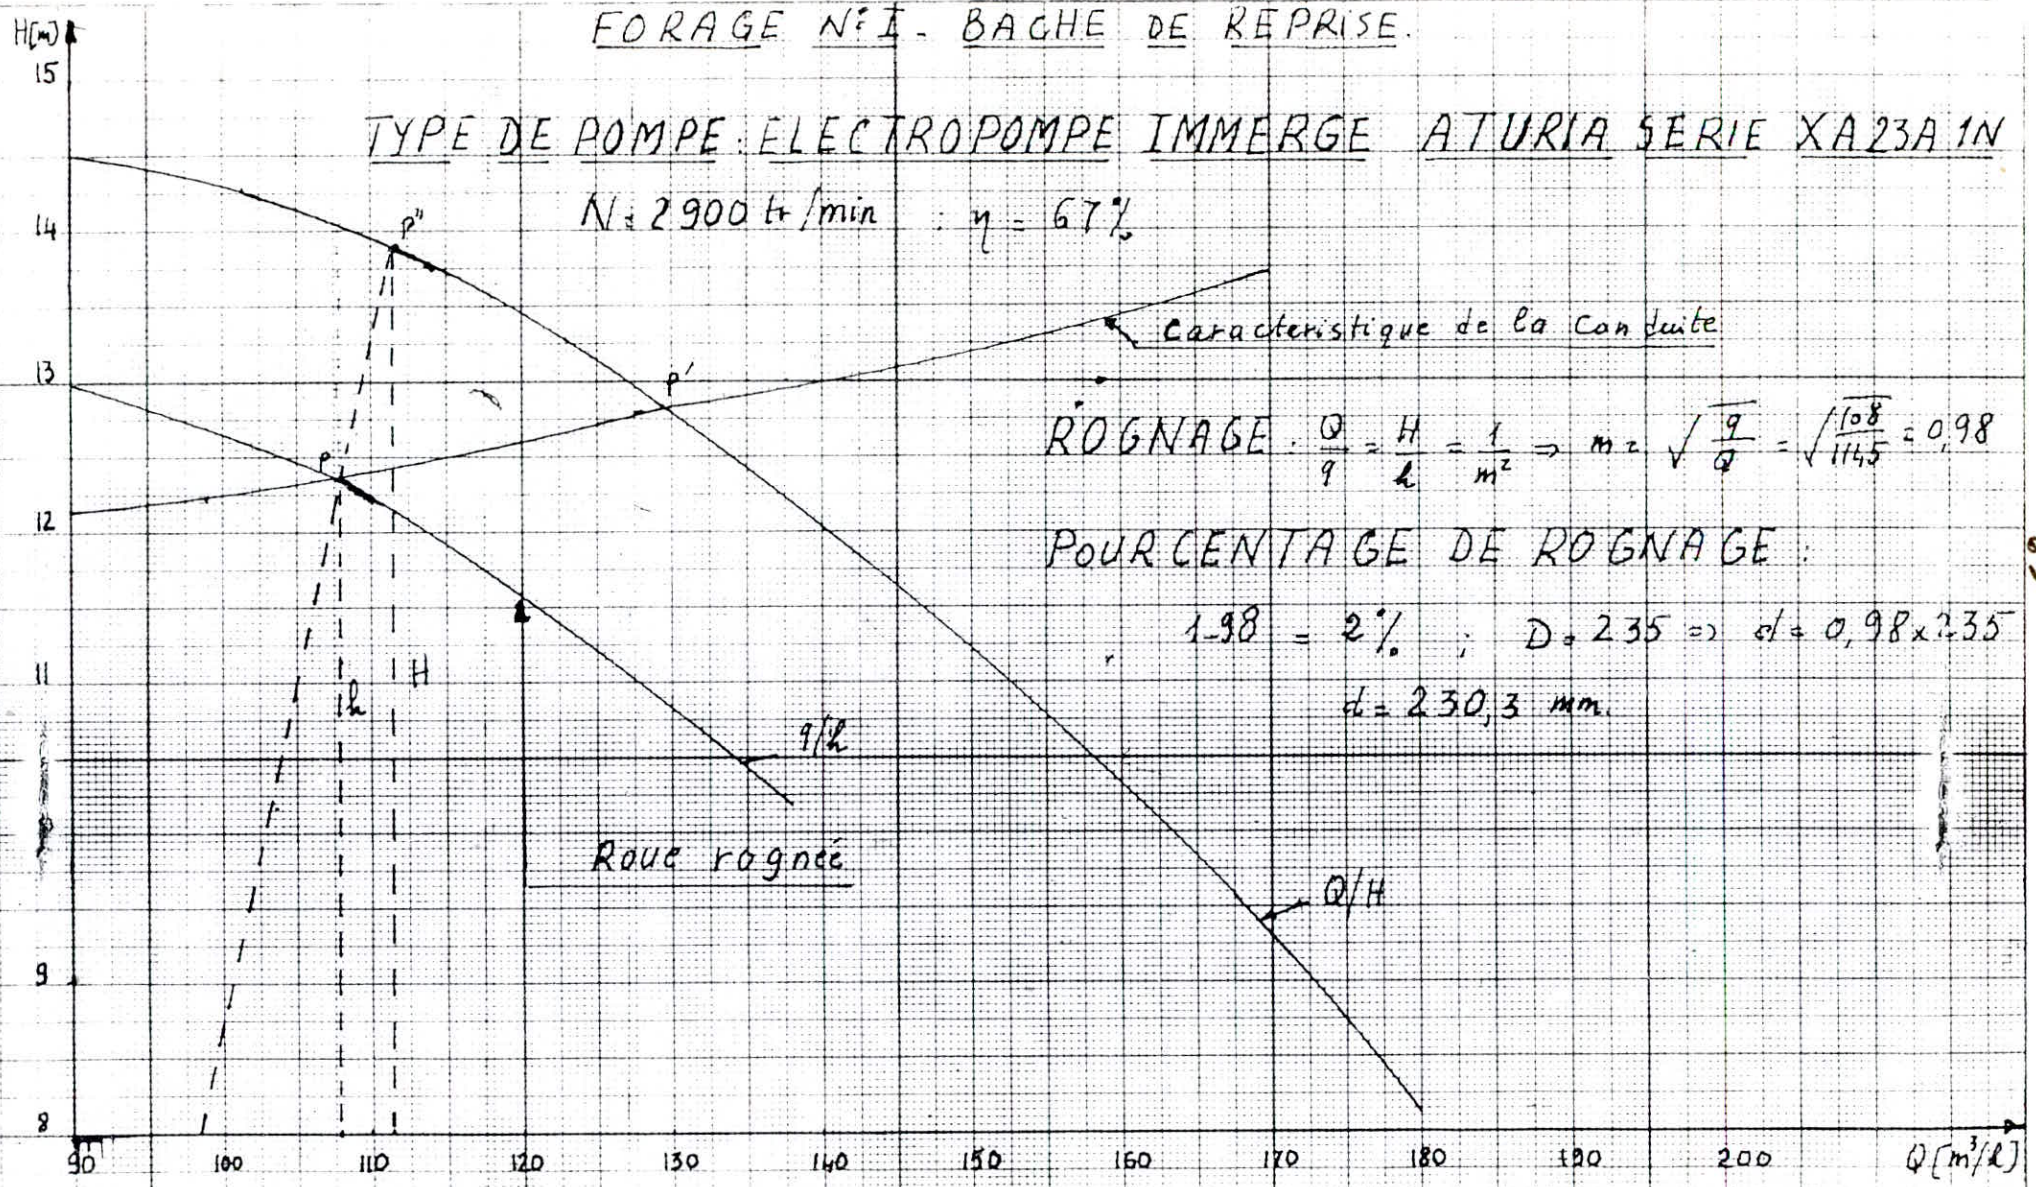 FORAGE N°I - BACHE DE REPRISE.
H[m]
15
TYPE DE POMPE : ELECTROPOMPE IMMERGE ATURIA SERIE XA23A1N
N = 2900 tr/min ; η = 67%
14
P"
caracteristique de la conduite
13
P'
ROGNAGE : Q/q = H/h = 1/m² ⇒ m = √q/Q = √108/111,5 = 0,98
P
12
POURCENTAGE DE ROGNAGE :
1-98 = 2% ; D = 235 ⇒ d = 0,98x235
11
h
H
d = 230,3 mm.
q/h
Roue rognée
Q/H
9
8
90 100 110 120 130 140 150 160 170 180 190 200 Q[m³/h]